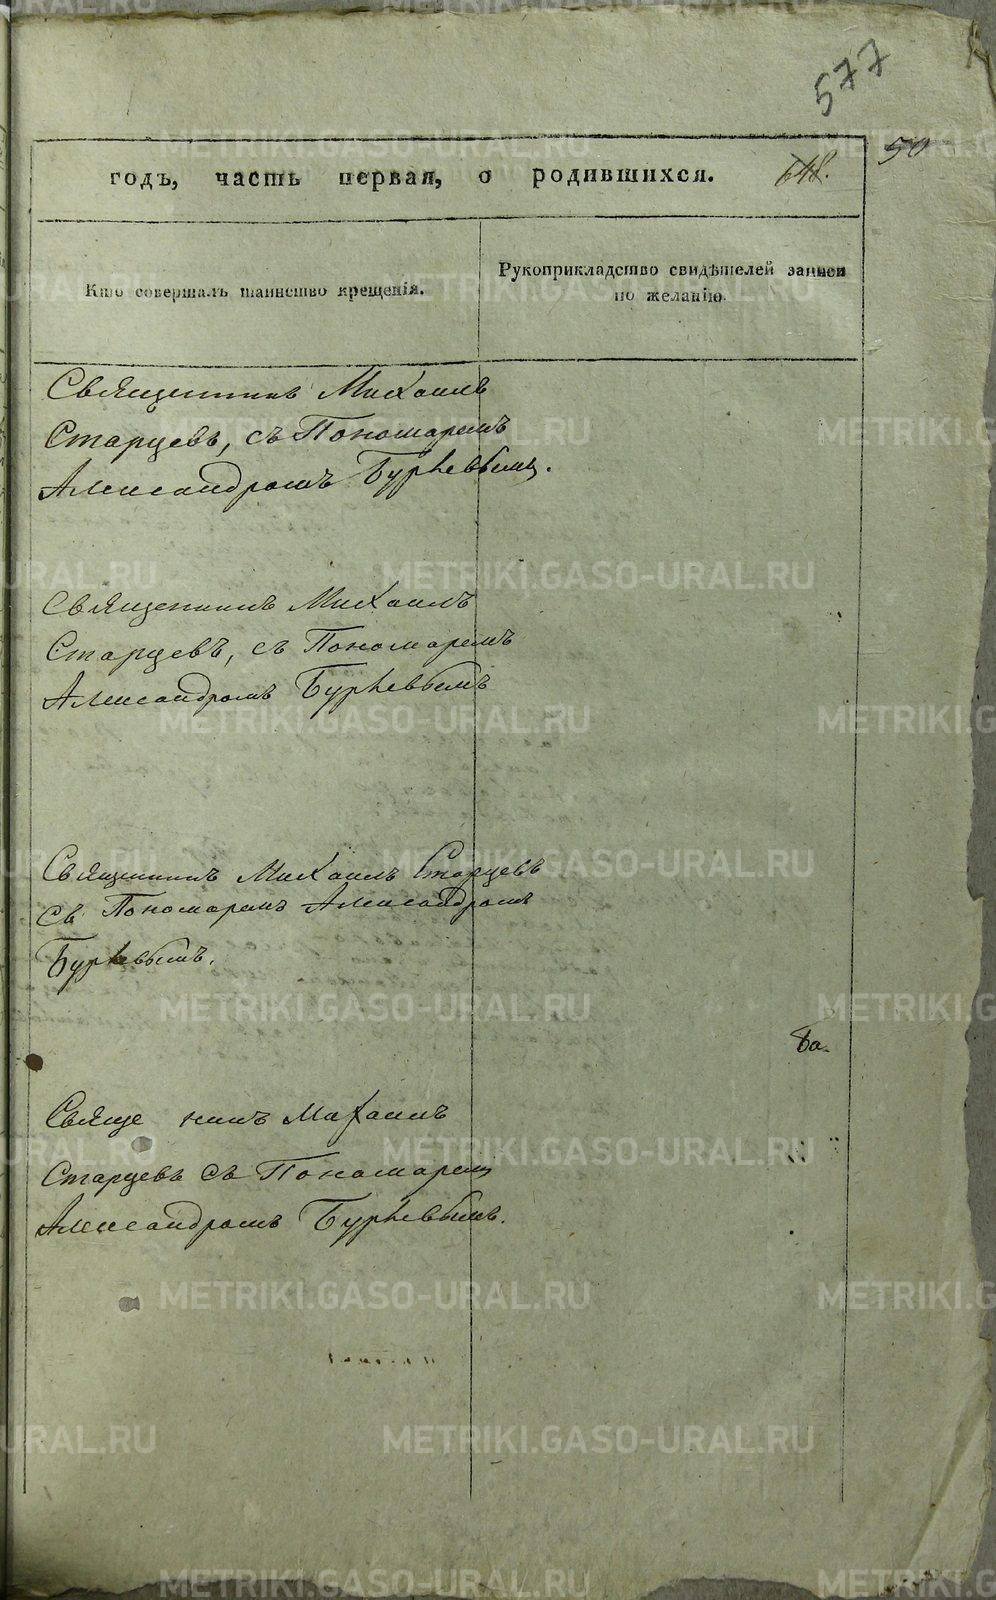 577
50
годъ, часть первая, о родившихся. 618.
Кто совершалъ таинство крещенія.
Рукоприкладство свидѣтелей записи
по желанію.
Священникъ Михаилъ
Старцевъ, съ Пономаремъ
Александромъ Бурневымъ.
Священникъ Михаилъ
Старцевъ, съ Пономаремъ
Александромъ Бурневымъ
Священникъ Михаилъ Старцевъ
съ Пономаремъ Александромъ
Бурневымъ.
Свяще никъ Михаилъ
Старцевъ съ Пономаремъ
Александромъ Бурневымъ.
METRIKI.GASO-URAL.RU